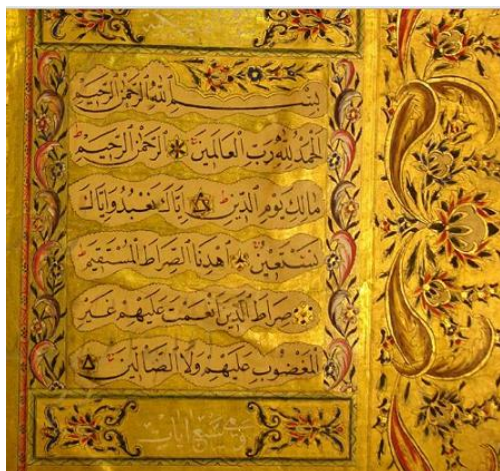 بسم الله الرحمن الرحيم
الحمد لله رب العالمين الرحمن الرحيم
مالك يوم الدين اياك نعبد واياك
نستعين اهدنا الصراط المستقيم
صراط الذين انعمت عليهم غير
المغضوب عليهم ولا الضالين
وهي سبع ايات